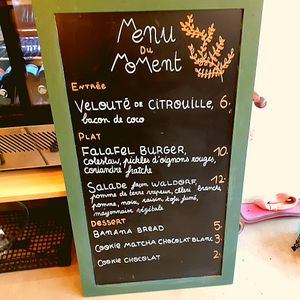 Menu
Du
Moment
Entrée
Velouté de citrouille, 6.
bacon de coco
Plat
Falafel Burger, 10.
coleslaw, pickles d'oignons rouges,
coriandre fraîche
Salade façon Waldorf 12.
pomme de terre vapeur, céleri branche
pomme, noix, raisin, tofu fumé,
mayonnaise végétale
Dessert
Banana Bread 5.
Cookie Matcha Chocolat Blanc 3.
Cookie Chocolat 2.